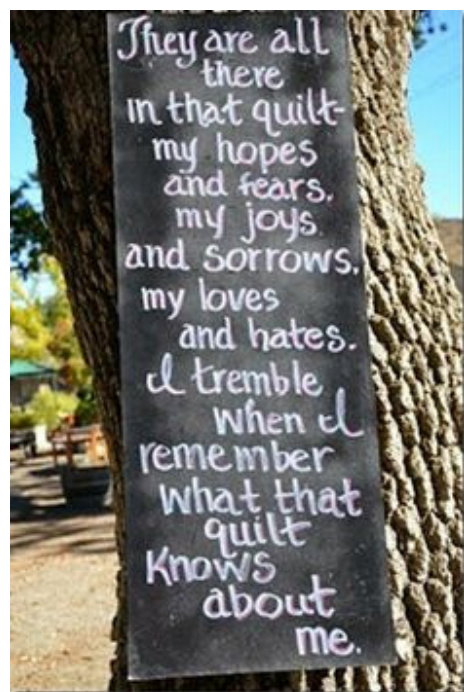 They are all
there
in that quilt-
my hopes
and fears,
my joys
and sorrows,
my loves
and hates.
I tremble
when I
remember
what that
quilt
Knows
about
me.